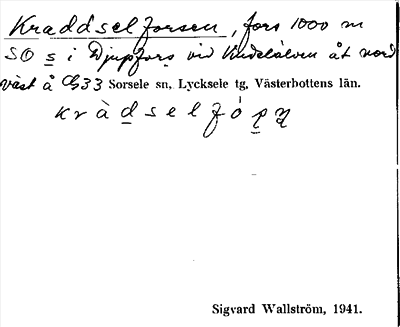 Kraddselforsen, fors 1000 m
SO s i Djupfors vid Vindelälven åt nord
väst å G33 Sorsele sn, Lycksele tg, Västerbottens län.
kràdselfó
Sigvard Wallström, 1941.